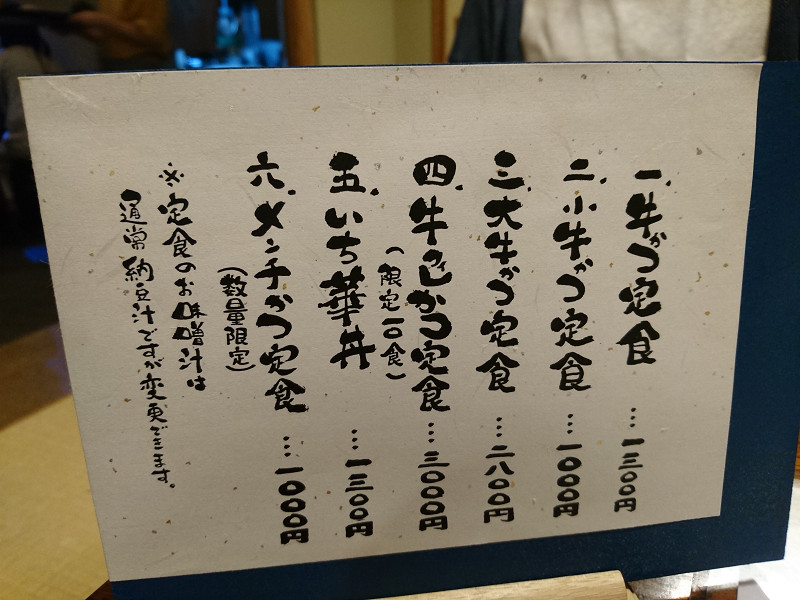 一、牛かつ定食…一三00円
二、小牛かつ定食…一000円
三、大牛かつ定食…二八00円
四、牛ヒレかつ定食…三000円
(限定一0食)
五、いち華丼…一三00円
六、メンチかつ定食…一000円
(数量限定)
※定食のお味噌汁は
通常納豆汁ですが変更できます。